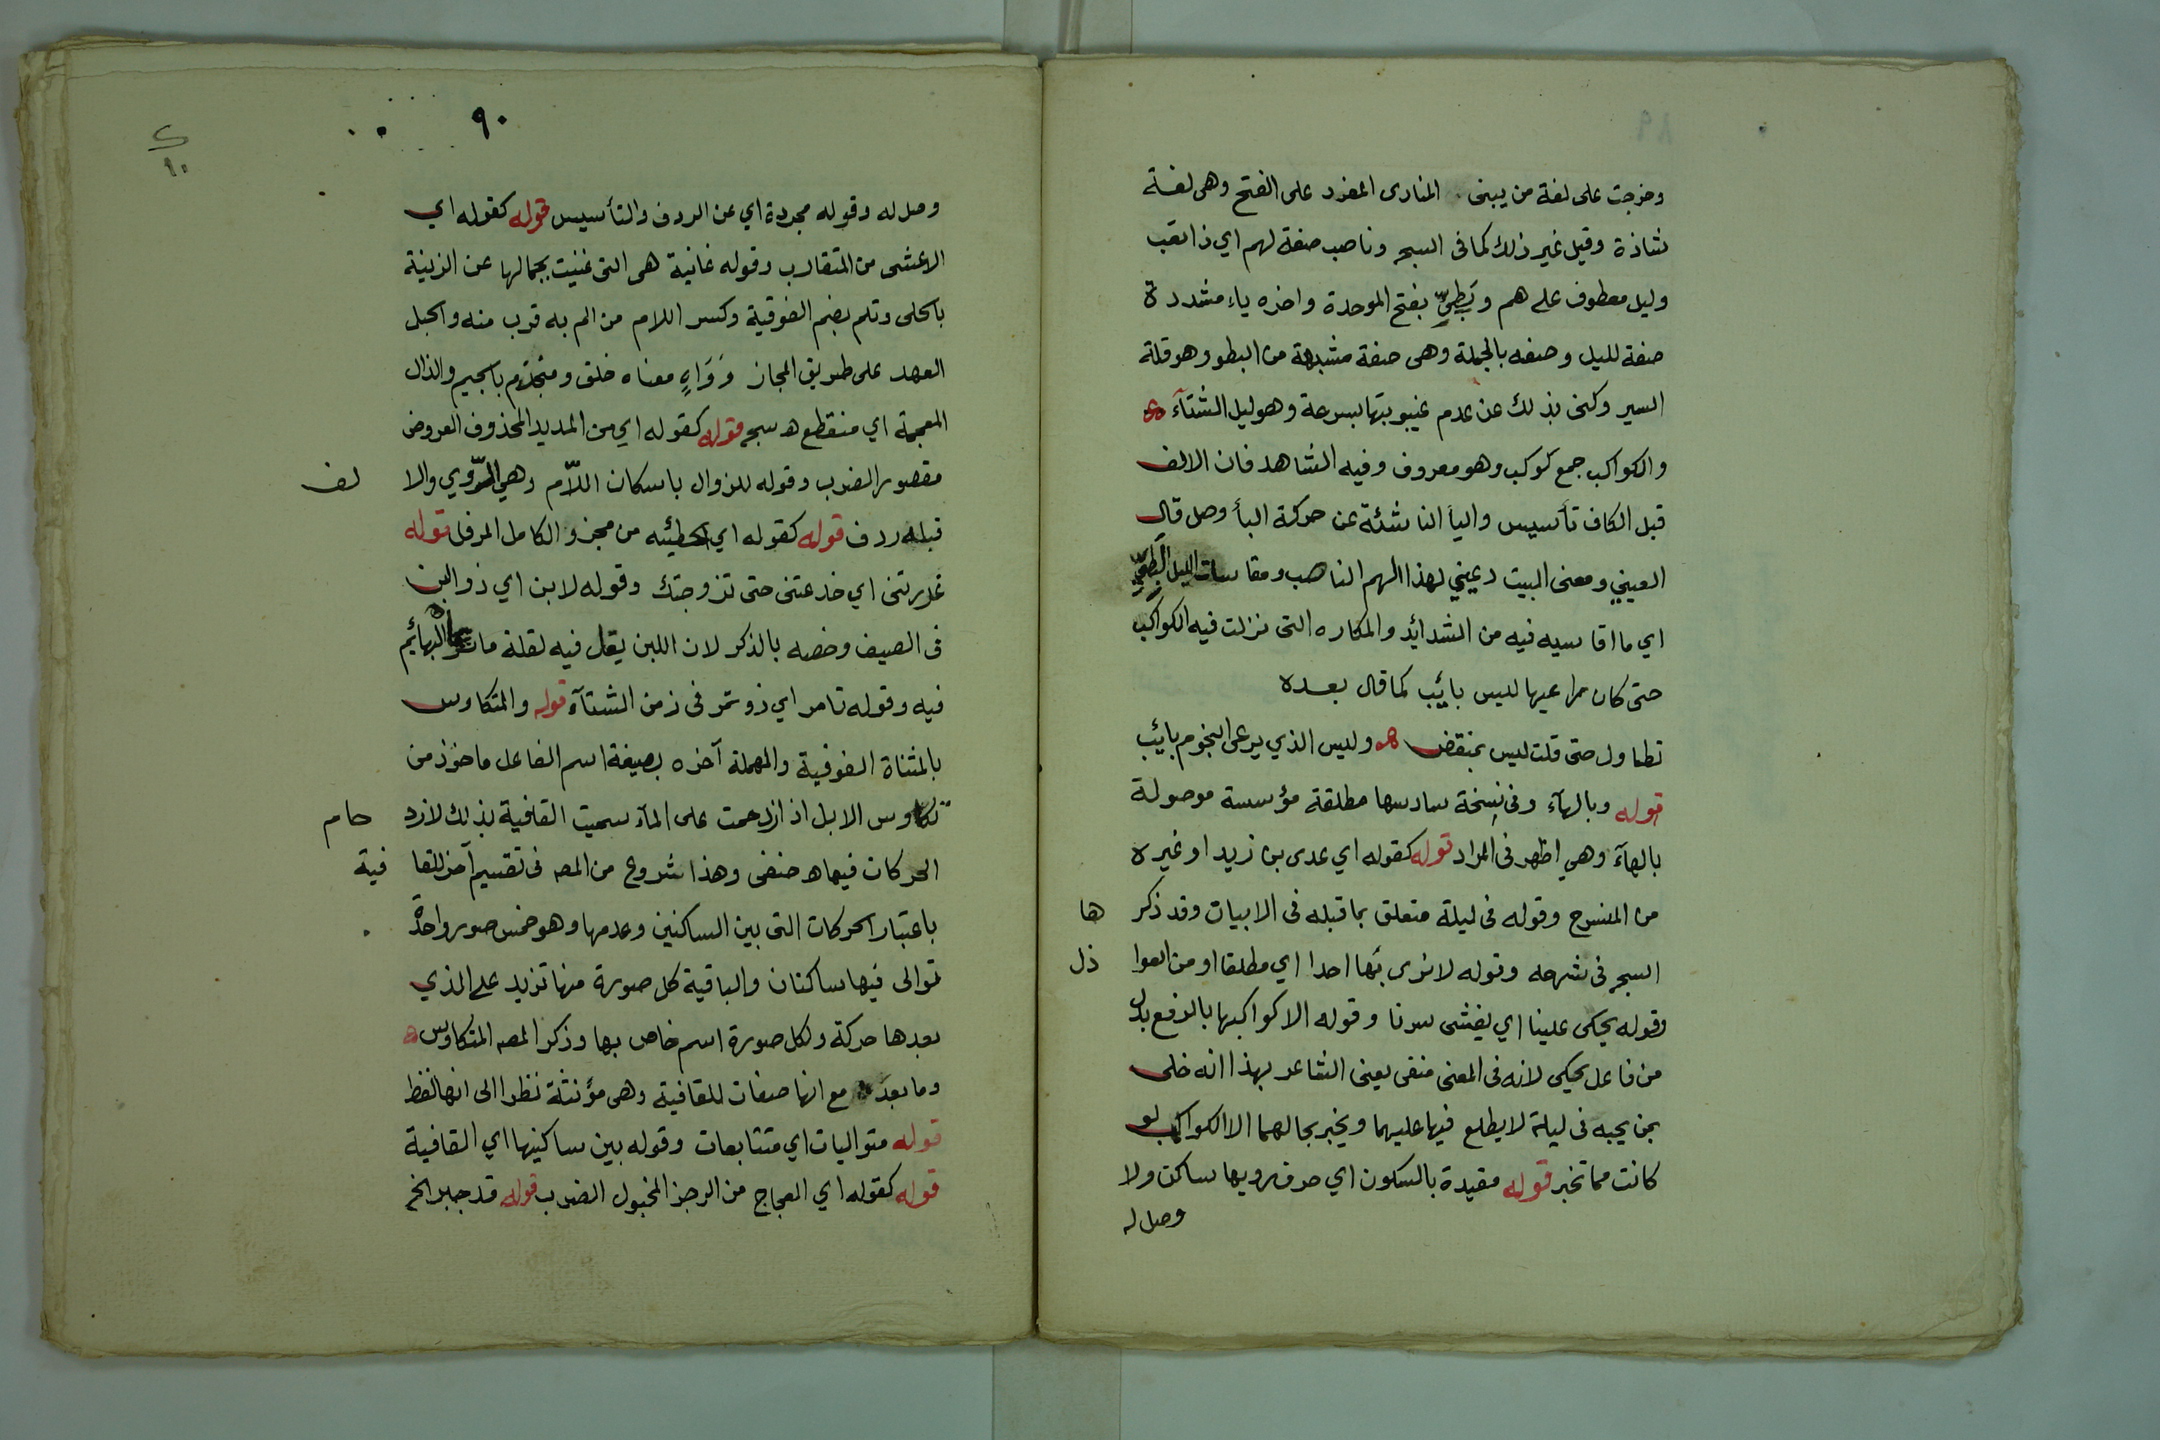 وخرجت على لغة من يبنى المنادى المفرد على الفتح وهى لغة
شاذة وقيل غير ذلك كما فى السجر وناصب صفة لهم اي ذا تعب
وليل معطوف على هم وبَطِيِّ بفتح الموحدة واخره ياء مشددة
صفة لليل وصفه بالجملة وهى صفة مشبهة من البطو وهو قلة
السير وكنى بذلك عن عدم غيبوبتها بسرعة وهو ليل الشتآء
والكواكب جمع كوكب وهو معروف وفيه الشاهد فان الالف
قبل الكاف تأسيس واليأ الناشئة عن حركة البأ وصل قال
العينى ومعنى البيت دعينى لهذا الهم الناصب ومقاسات الليل البطى
اي ما اقاسيه فيه من الشدائد والمكاره التى نزلت فيه الكواكب
حتى كان راعيها ليس بائب كما قال بعده
تطاول حتى قلت ليس بمنقض ه وليس الذي يرعى النجوم بائب
قوله وبالهآء وفى نسخة سادسها مطلقة مؤسسة موصولة
بالهآء وهي اظهر فى المراد قوله كقوله اي عدى بن زيد او غيره
من المنسرح وقوله فى ليلة متعلق بما قبله فى الابيات وقد ذكرها
السجر فى شرحه وقوله لا نرى بها احدا اي مطلقا او من العواذل
وقوله يحكى علينا اي يفشى سرنا وقوله الا كواكبها بالرفع بدل
من فاعل يحكى لانه فى المعنى منفى يعنى الشاعر بهذا انه خلى
بمن يحبه فى ليلة لا يطلع فيها عليهما ويخبر بحالهما الا الكواكب لو
كانت مما تخبر قوله مقيدة بالسكون اي حرف رويها ساكن ولا
وصل له
٩٠
٩٠
وصل له وقوله مجردة اي عن الردف والتأسيس قوله كقوله اي
الاعشى من المتقارب وقوله غانية هى التى غنيت بجمالها عن الزينة
بالحلى وتلم بضم الفوقية وكسر اللام من الم به قرب منه والحبل
العهد على طريق المجاز وَوَاهٍ معناه خلق ومنجذم بالجيم والذال
المعجمة اي منقطع ه سجر قوله كقوله اي من المديد المحذوف العروض
مقصور الضرب وقوله للزوال باسكان اللّام وهي الرّوي والالف
قبله ردف قوله كقوله اي الحطيئه من مجزو الكامل المرفل قوله
غررتنى اي خدعتنى حتى تزوجتك وقوله لابن اي ذو البن
فى الصيف وخصه بالذكر لان اللبن يقل فيه لقلة ما البهائم
فيه وقوله تامر اي ذو تمر فى زمن الشتآء قوله والمتكاوس
بالمثناة الفوقية والمهملة آخره بصيغة اسم الفاعل ماخوذ من
تكاوس الابل اذ ازدحمت على المآء سميت القافية بذلك لازدحام
الحركات فيها ه حنفى وهذا شروع من المصـ فى تقسيم آخر للقافية
باعتبار الحركات التى بين الساكنين وعدمها وهو خمس صور واحدة
توالى فيها ساكنان والباقية كل صورة منها تزيد على الذي
بعدها حركة ولكل صورة اسم خاص بها وذكر المصـ المتكاوس
وما بعد مع انها صفات للقافية وهى مؤنثة نظرا الى انها لفظ
قوله متواليات اي متتابعات وقوله بين ساكنيها اي القافية
قوله كقوله اي العجاج من الرجز المخبول الضرب قوله قد جبر الخ